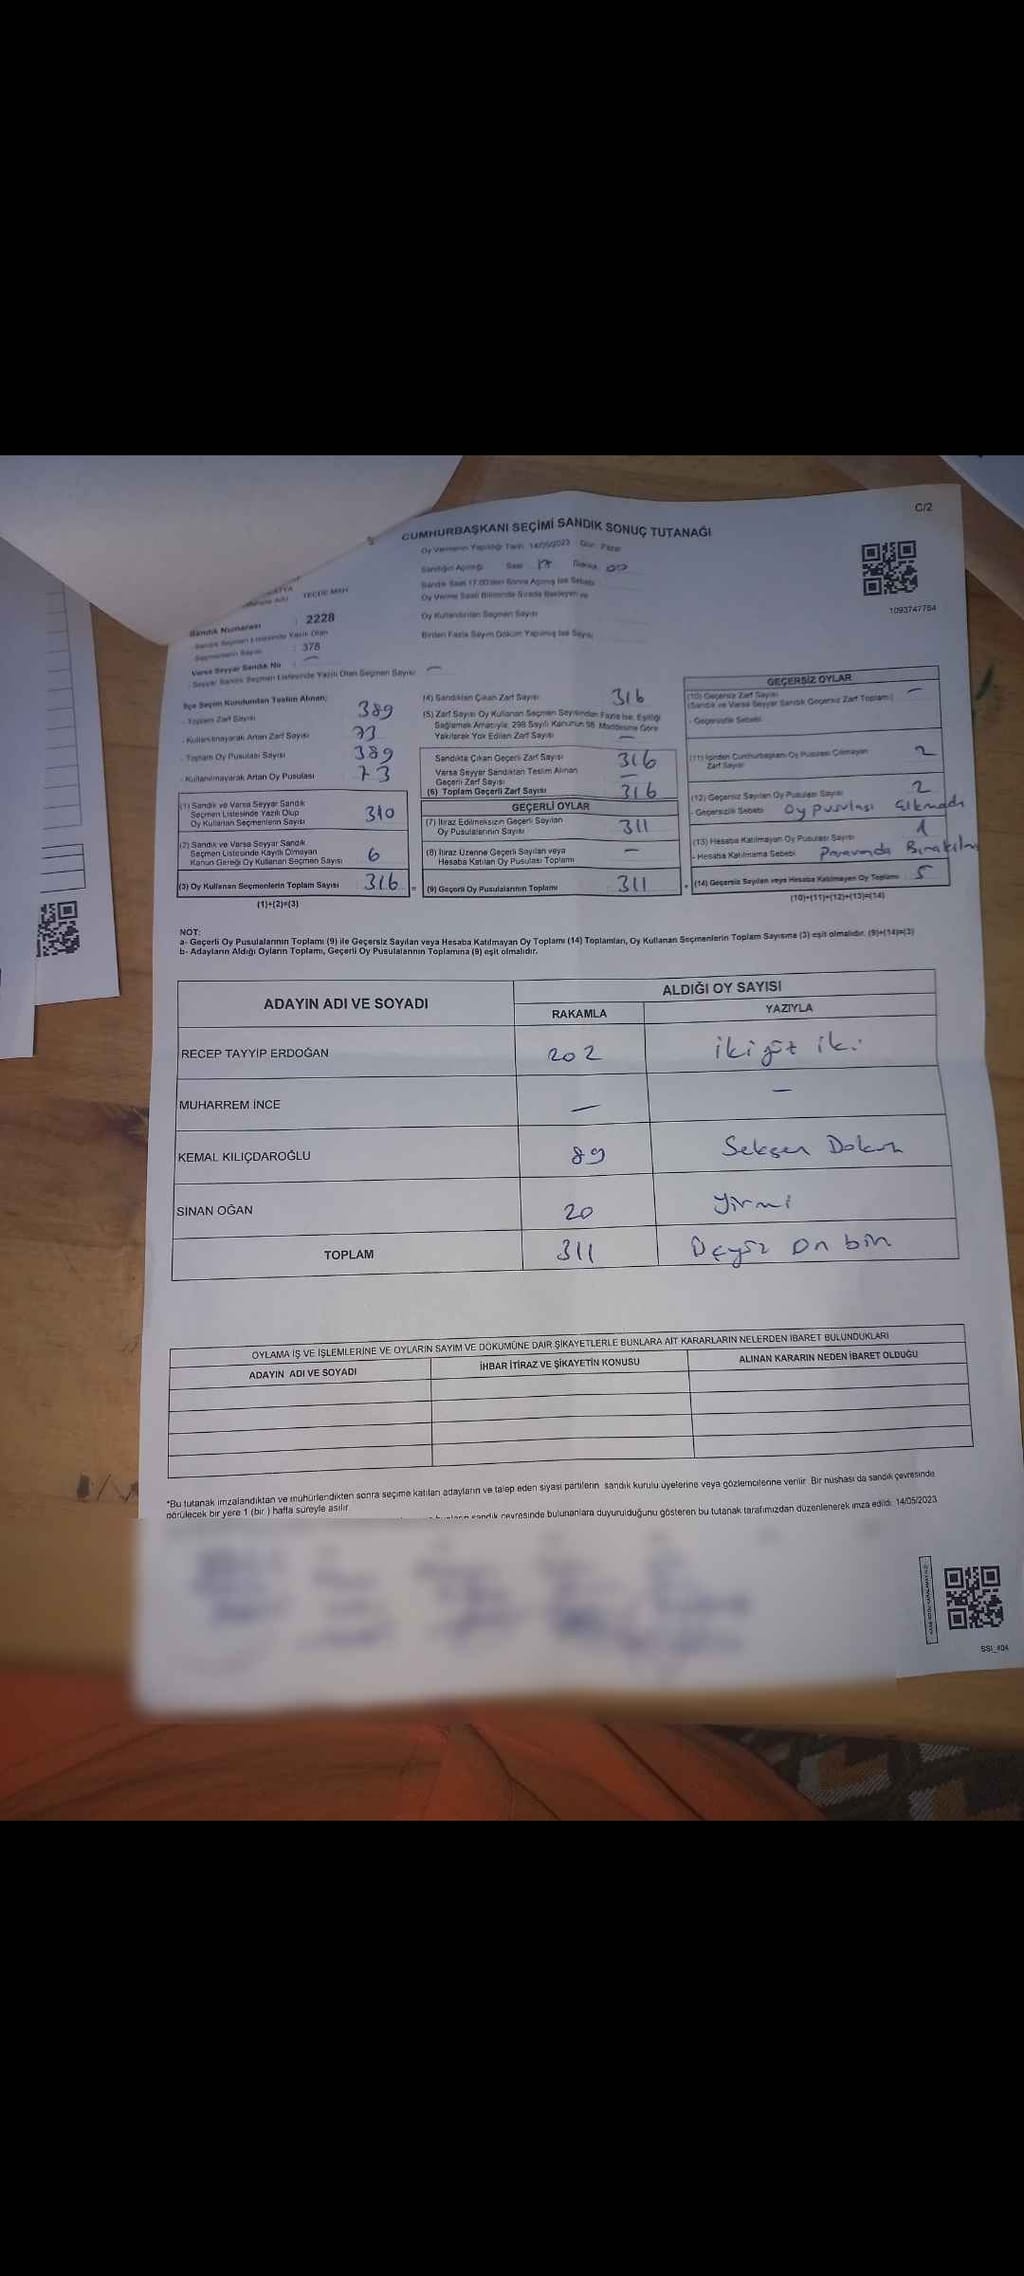 C/2
CUMHURBAŞKANI SEÇİMİ SANDIK SONUÇ TUTANAĞI
Oy Vermenin Yapıldığı Tarih: 14/05/2023 Gün: Pazar
Sandığın Açılışı Saat 17 Dakika 00
Sandık Saat 17.00'den Sonra Açılmış İse Sebebi
Oy Verme Saati Bitiminde Sırada Bekleyen ve
Oy Kullandırılan Seçmen Sayısı
Birden Fazla Sayım Döküm Yapılmış İse Sayısı
1093747764
TECDE MAH
Sandık Numarası : 2228
Sandık Seçmen Listesinde Yazılı Olan
Seçmenlerin Sayısı : 378
Varsa Seyyar Sandık No : —
Seyyar Sandık Seçmen Listesinde Yazılı Olan Seçmen Sayısı —
İlçe Seçim Kurulundan Teslim Alınan;
- Toplam Zarf Sayısı 389
- Kullanılmayarak Artan Zarf Sayısı 73
- Toplam Oy Pusulası Sayısı 389
- Kullanılmayarak Artan Oy Pusulası 73
(1) Sandık ve Varsa Seyyar Sandık
Seçmen Listesinde Yazılı Olup
Oy Kullanan Seçmenlerin Sayısı 310
(2) Sandık ve Varsa Seyyar Sandık
Seçmen Listesinde Kayıtlı Olmayan
Kanun Gereği Oy Kullanan Seçmen Sayısı 6
(3) Oy Kullanan Seçmenlerin Toplam Sayısı 316 =
(1)+(2)=(3)
(4) Sandıktan Çıkan Zarf Sayısı 316
(5) Zarf Sayısı Oy Kullanan Seçmen Sayısından Fazla İse, Eşitliği
Sağlamak Amacıyla, 298 Sayılı Kanunun 98. Maddesine Göre
Yakılarak Yok Edilen Zarf Sayısı —
Sandıkta Çıkan Geçerli Zarf Sayısı 316
Varsa Seyyar Sandıktan Teslim Alınan
Geçerli Zarf Sayısı —
(6) Toplam Geçerli Zarf Sayısı 316
GEÇERLİ OYLAR
(7) İtiraz Edilmeksizin Geçerli Sayılan
Oy Pusulalarının Sayısı 311
(8) İtiraz Üzerine Geçerli Sayılan veya
Hesaba Katılan Oy Pusulası Toplamı —
(9) Geçerli Oy Pusulalarının Toplamı 311 +
GEÇERSİZ OYLAR
(10) Geçersiz Zarf Sayısı
(Sandık ve Varsa Seyyar Sandık Geçersiz Zarf Toplamı) —
- Geçersizlik Sebebi
(11) İçinden Cumhurbaşkanı Oy Pusulası Çıkmayan
Zarf Sayısı 2
(12) Geçersiz Sayılan Oy Pusulası Sayısı 2
- Geçersizlik Sebebi Oy pusulası çıkmadı
(13) Hesaba Katılmayan Oy Pusulası Sayısı 1
- Hesaba Katılmama Sebebi Paravanda Bırakılan
(14) Geçersiz Sayılan veya Hesaba Katılmayan Oy Toplamı 5
(10)+(11)+(12)+(13)=(14)
NOT:
a- Geçerli Oy Pusulalarının Toplamı (9) ile Geçersiz Sayılan veya Hesaba Katılmayan Oy Toplamı (14) Toplamları, Oy Kullanan Seçmenlerin Toplam Sayısına (3) eşit olmalıdır. (9)+(14)=(3)
b- Adayların Aldığı Oyların Toplamı, Geçerli Oy Pusulalarının Toplamına (9) eşit olmalıdır.
ADAYIN ADI VE SOYADI
ALDIĞI OY SAYISI
RAKAMLA YAZIYLA
RECEP TAYYİP ERDOĞAN 202 ikiyüz iki
MUHARREM İNCE — —
KEMAL KILIÇDAROĞLU 89 Seksen Dokuz
SİNAN OĞAN 20 Yirmi
TOPLAM 311 Üçyüz On bir
OYLAMA İŞ VE İŞLEMLERİNE VE OYLARIN SAYIM VE DÖKÜMÜNE DAİR ŞİKAYETLERLE BUNLARA AİT KARARLARIN NELERDEN İBARET BULUNDUKLARI
ADAYIN ADI VE SOYADI İHBAR İTİRAZ VE ŞİKAYETİN KONUSU ALINAN KARARIN NEDEN İBARET OLDUĞU
*Bu tutanak imzalandıktan ve mühürlendikten sonra seçime katılan adayların ve talep eden siyasi partilerin sandık kurulu üyelerine veya gözlemcilerine verilir. Bir nüshası da sandık çevresinde
görülecek bir yere 1 (bir ) hafta süreyle asılır.
sandık çevresinde bulunanlara duyurulduğunu gösteren bu tutanak tarafımızdan düzenlenerek imza edildi. 14/05/2023
SSI_404